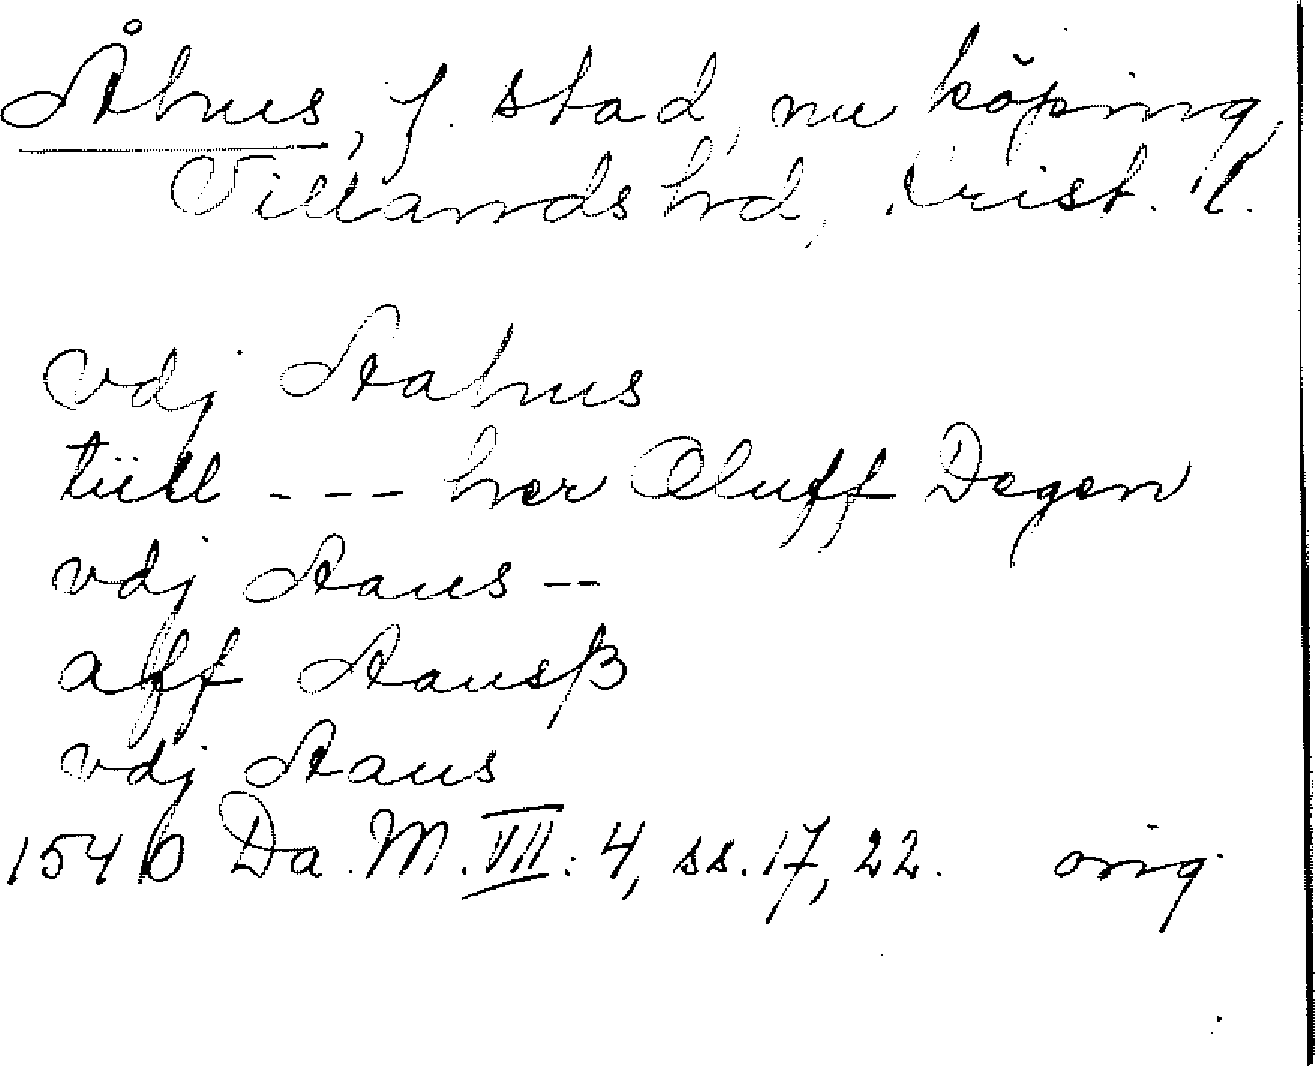 Åhus, f. stad, nu köping,
Villands hd, Krist. l.
vdj Aahus
tiill --- her Oluff Degen
vdj Aaus --
aff Aausß
vdj Aaus
1540 Da. M. VII: 4, ss. 17, 22. orig.